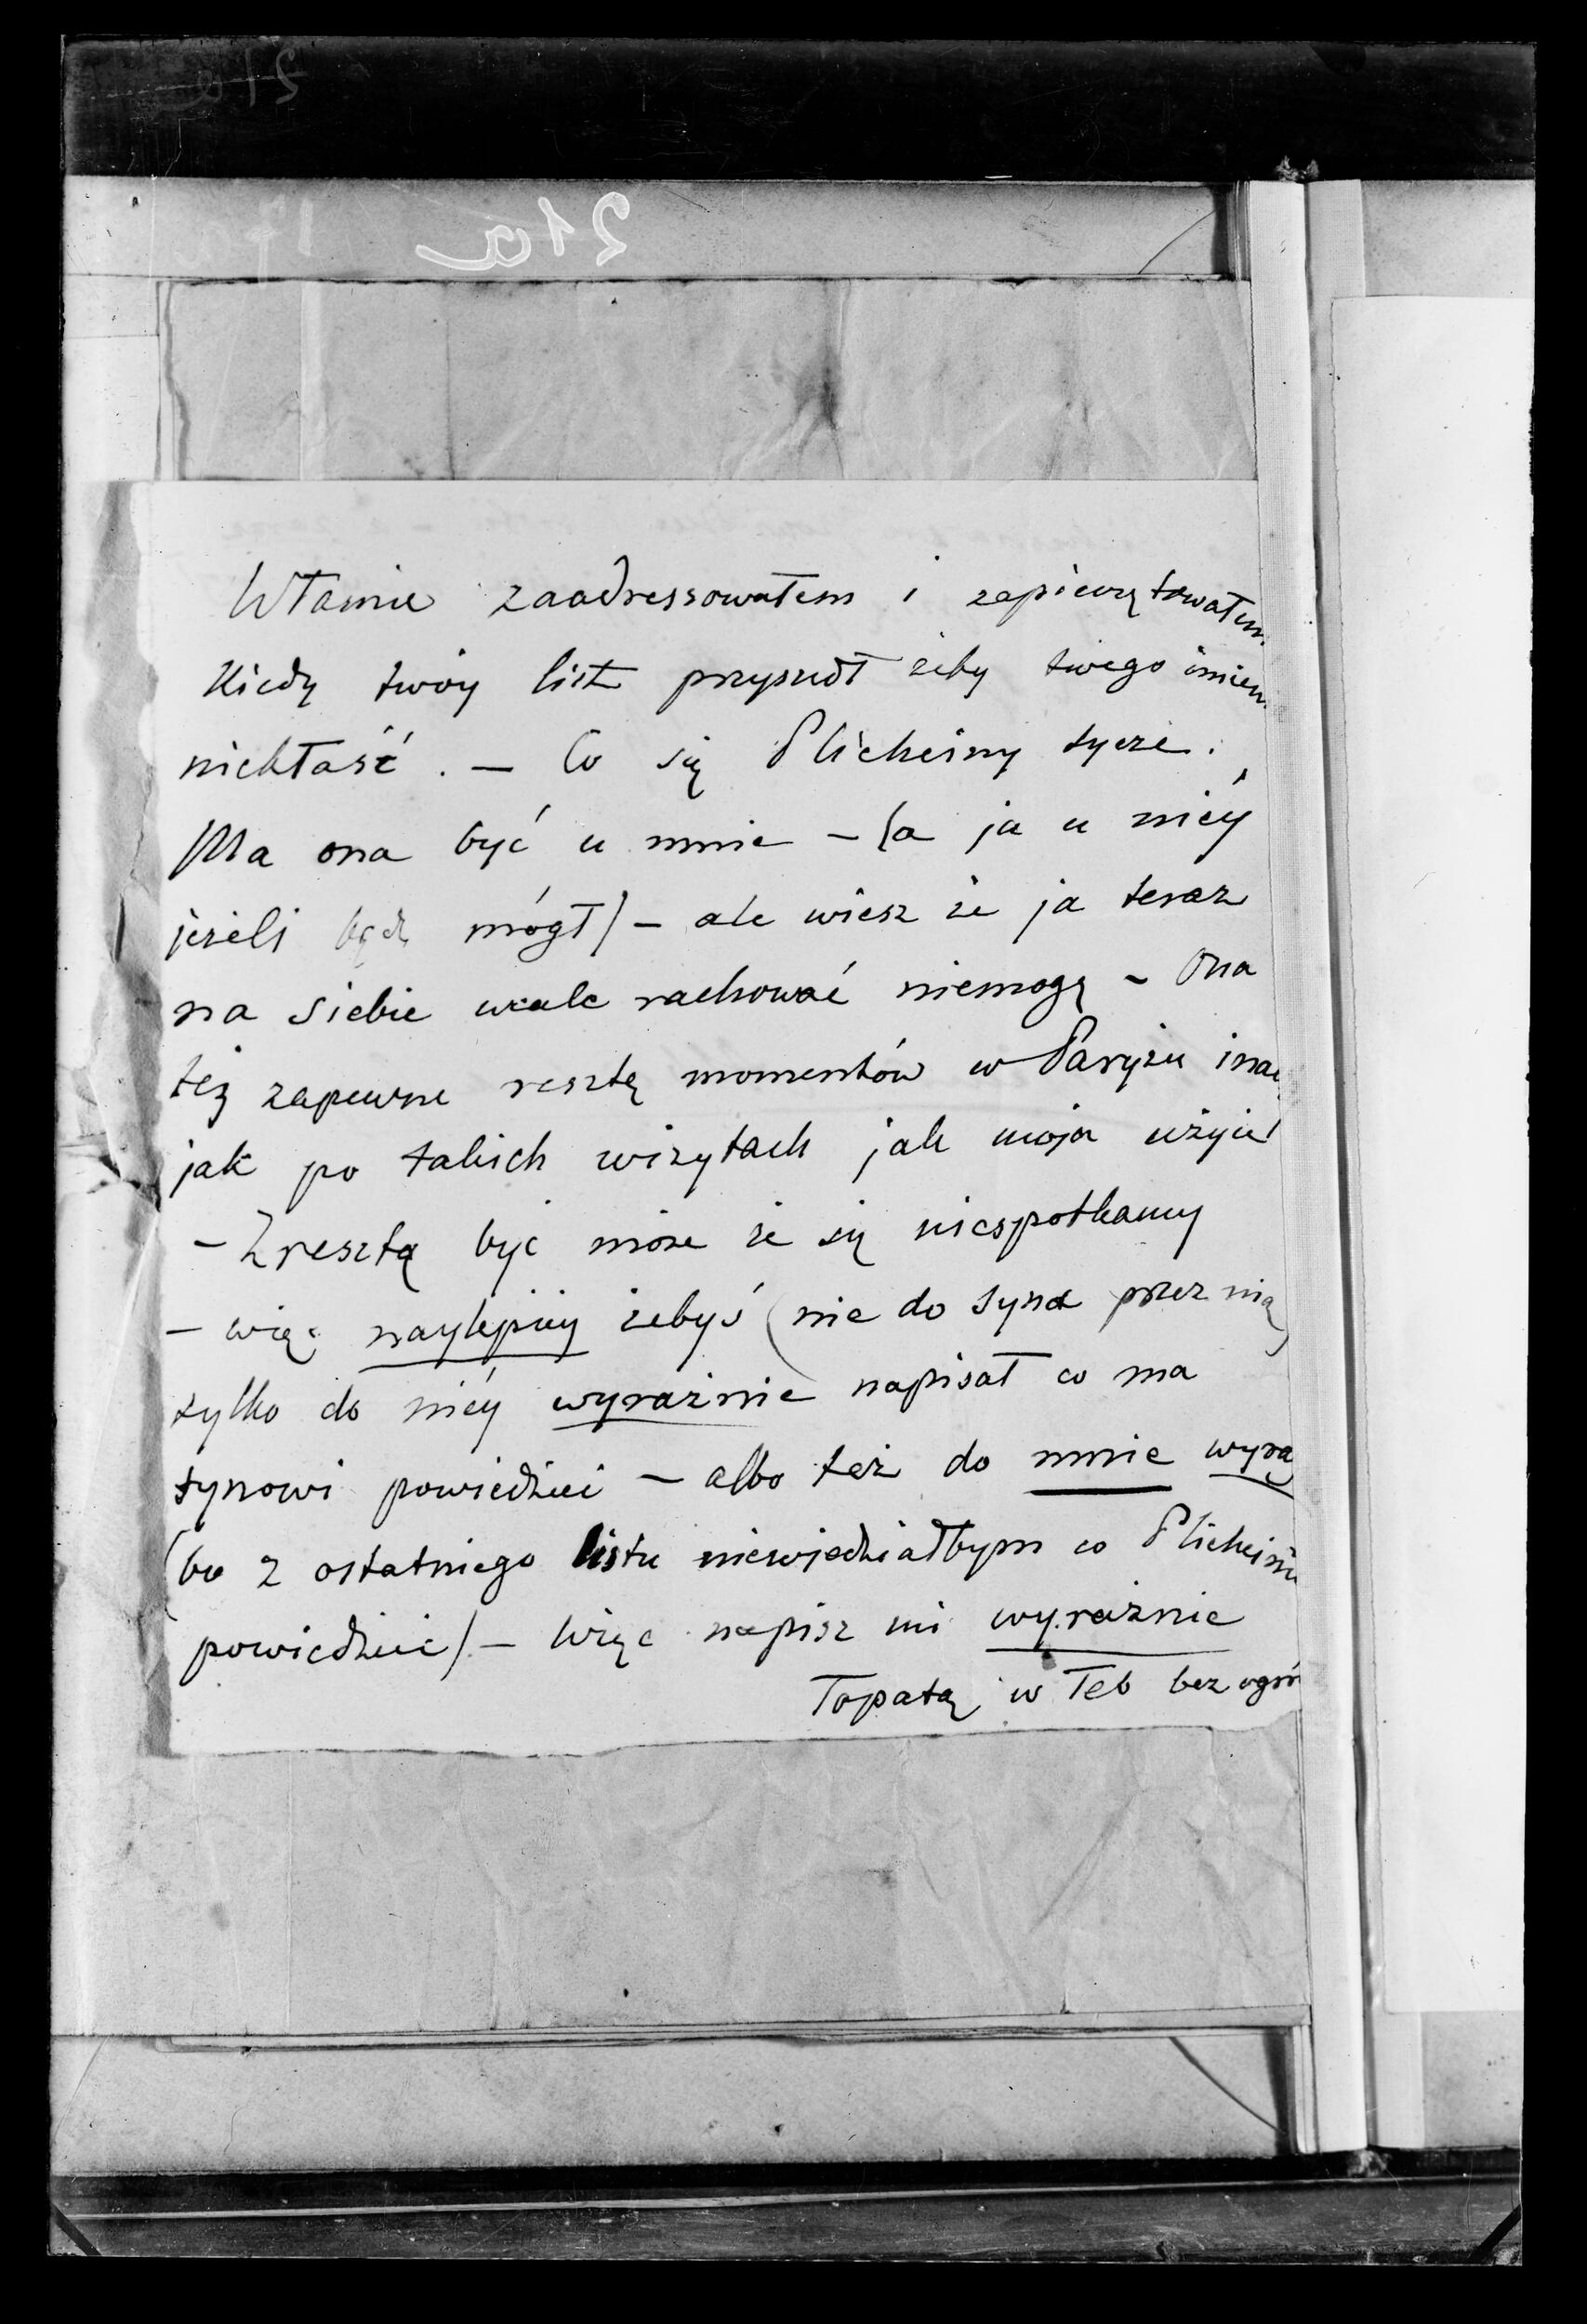 21a
Własnie zaadressowałem i zapieczętowałem
Kiedy twóy list przyszedł żeby twego imien.
niekłaść. — Co się Plicheiny tycze.
Ma ona być u mnie – (a ja u niéy
jeżeli będę mógł) – ale wiesz że ja teraz
na siebie wcale rachować niemogę – Ona
też zapewne resztę momentów w Paryżu inac
jak po takich wizytach jak moja użyie
– Zresztą być może że się niespotkamy
– więc naylepiey żebyś (nie do syna przez nią)
tylko do niéy wyraźnie napisał co ma
synowi powiedzieć – albo też do mnie wyra
(bo z ostatniego listu niewiedziałbym co Plicheinie
powiedzieć) – Więc napisz mi wyraźnie
Łopatą w łeb bez ogró